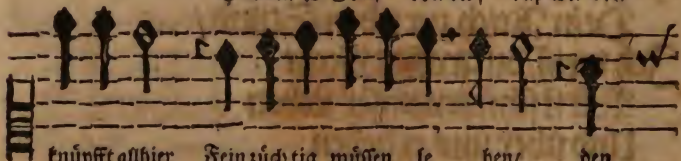 knüpfft allhier Fein züchtig müssen le ben/ den